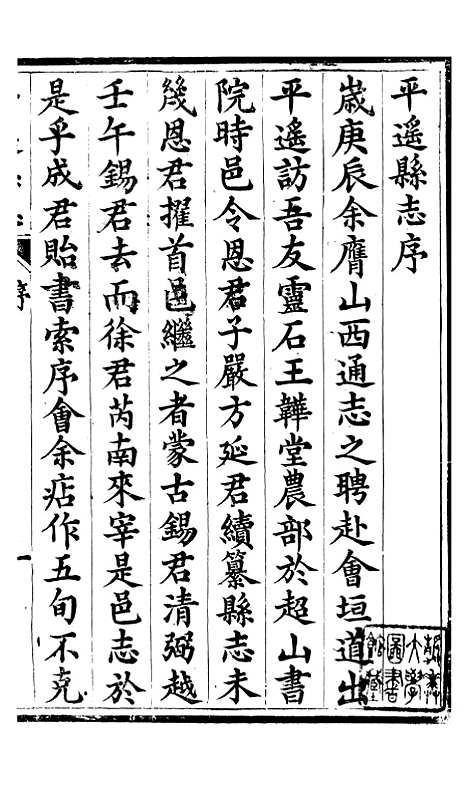 平遙縣志序
歲庚辰余膺山西通志之聘赴會垣道出
平遙訪吾友靈石王韡堂農部於超山書
院時邑令恩君子嚴方延君續纂縣志未
幾恩君擢首邑繼之者蒙古錫君清弼越
壬午錫君去而徐君芮南來宰是邑志於
是乎成君貽書索序會余痁作五旬不克
序
一
大學
圖書